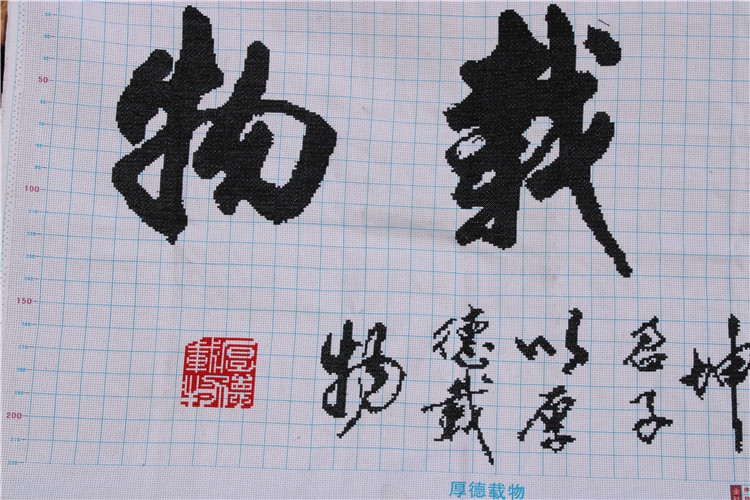 載物
坤
君子
以厚
德載
物
厚德載物
厚德载物
50
100
150
200